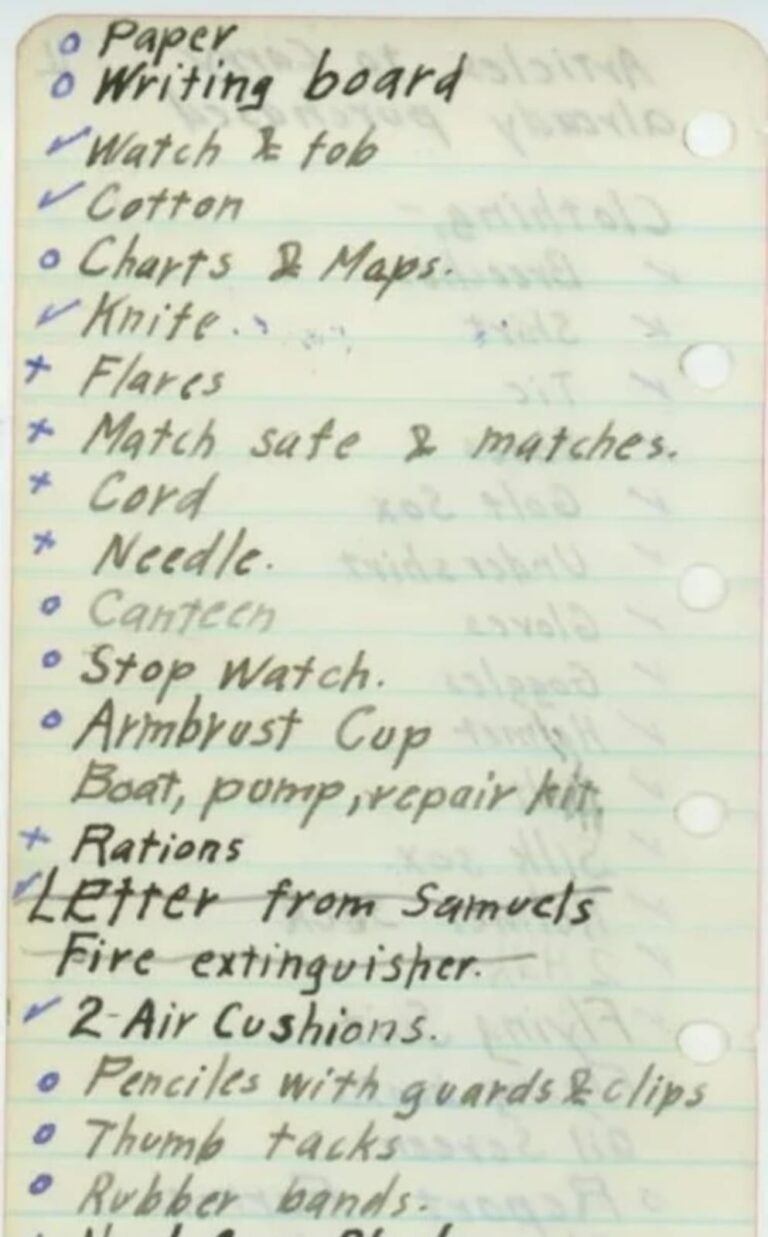 Paper
Writing board
Watch & fob
Cotton
Charts & Maps.
Knife.
Flares
Match safe & matches.
Cord
Needle.
Canteen
Stop Watch.
Armbrust Cup
Boat, pump, repair kit.
Rations
Letter from Samuels
Fire extinguisher.
2-Air Cushions.
Penciles with guards & clips
Thumb tacks
Rubber bands.